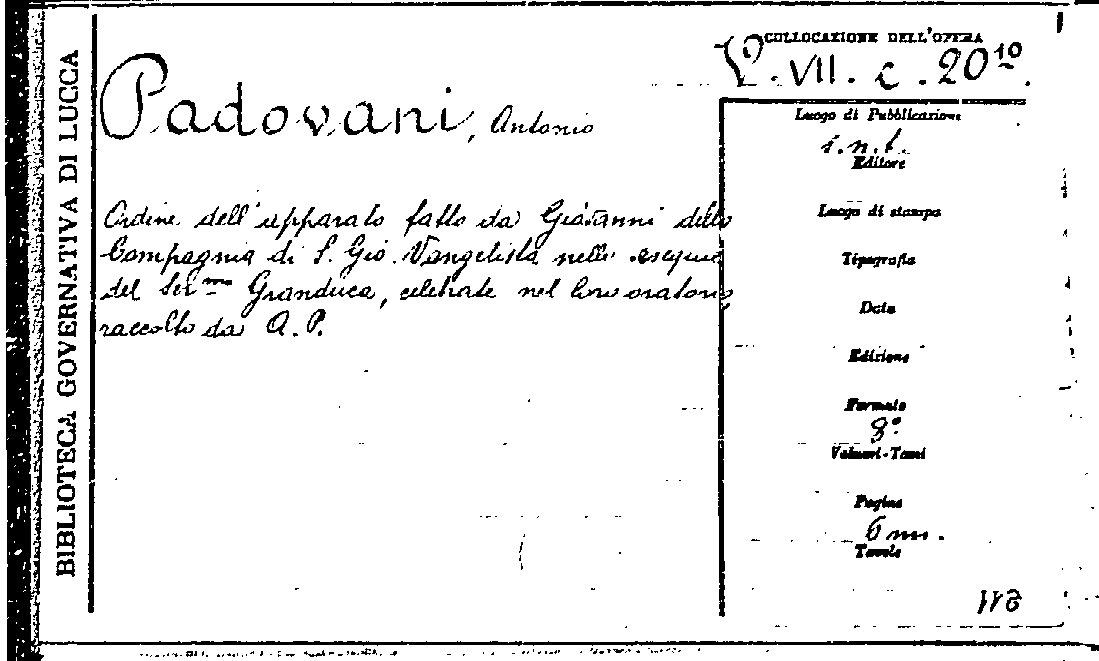 BIBLIOTECA GOVERNATIVA DI LUCCA
COLLOCAZIONE DELL'OPERA
VII. c. 20¹⁰.
Padovani, Antonio
Ordine dell'apparato fatto da Giovanni della
Compagnia di S. Gio. Vangelista nelle esequie
del Ser.mo Granduca, celebrate nel loro oratorio,
raccolto da A. P.
Luogo di Pubblicazione
s.n.t.
Editore
Luogo di stampa
Tipografia
Data
Edizione
Formato
8°
Volumi-Tomi
Pagine
6 nn.
Tavole